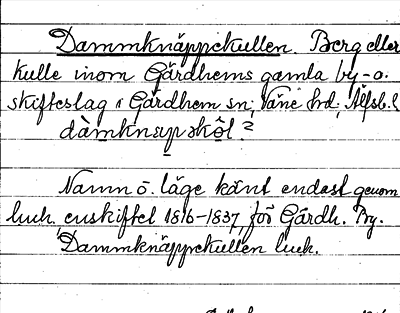 Dammknäppekullen. Berg eller
kulle inom Gärdhems gamla by- o.
skifteslag i Gärdhem sn, Väne hd, Älfsb. l
dàmknsupskôl?
Namn o. läge känt endast genom
luh. enskiftet 1816-1837, för Gärdh. By.
Dammknäppekullen luh.